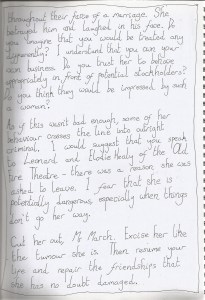 throughout their farce of a marriage. She
betrayed him and laughed in his face. Do
you imagine that you would be treated any
differently? I understand that you own your
own business. Do you trust her to behave
appropriately in front of potential stockholders?
Do you think they would be impressed by such
a woman?
As if this wasn't bad enough, some of her
behaviour crosses the line into outright
criminal. I would suggest that you speak
to Leonard and Elodie Healy of the Old
Fire Theatre - there was a reason she was
asked to leave. I fear that she is
potentially dangerous especially when things
don't go her way.
Cut her out, Mr March. Excise her like
the tumour she is. Then resume your
life and repair the friendships that
she has no doubt damaged.